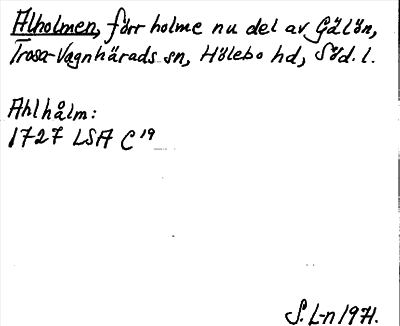 Alholmen, förr holme nu del av Gälön,
Trosa-Vagnhärads sn, Hölebo hd, Söd. l.
Ahlhålm:
1727 LSA C19
S. L-n 1971.